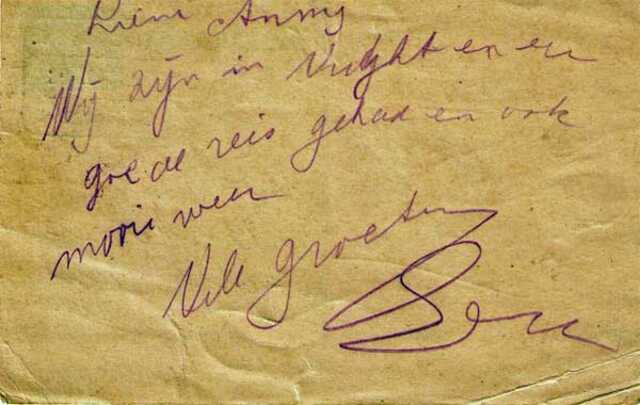 Lieve Anny
Wij zijn in Vught en een
goede reis gehad en ook
mooi weer
Vele groeten